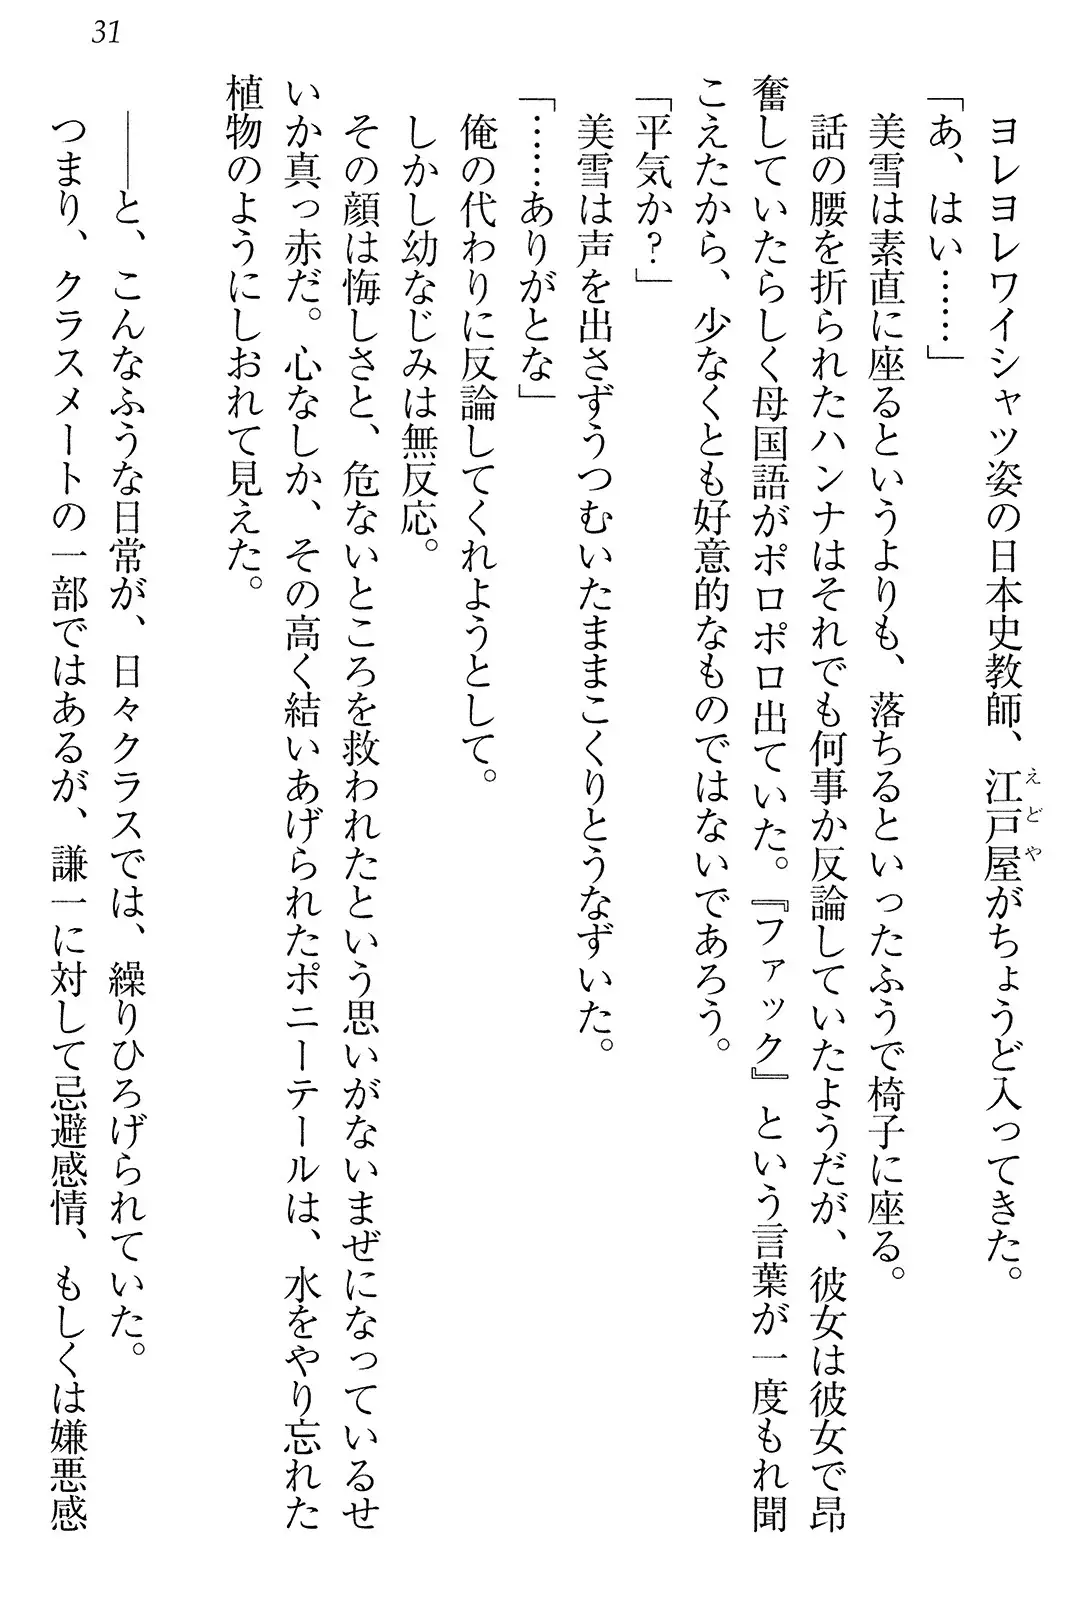 31
ヨレヨレワイシャツ姿の日本史教師、江戸屋がちょうど入ってきた。
えどや
「あ、はい……」
美雪は素直に座るというよりも、落ちるといったふうで椅子に座る。
話の腰を折られたハンナはそれでも何事か反論していたようだが、彼女は彼女で昂
奮していたらしく母国語がポロポロ出ていた。『ファック』という言葉が一度もれ聞
こえたから、少なくとも好意的なものではないであろう。
「平気か?」
美雪は声を出さずうつむいたままこくりとうなずいた。
「……ありがとな」
俺の代わりに反論してくれようとして。
しかし幼なじみは無反応。
その顔は悔しさと、危ないところを救われたという思いがないまぜになっているせ
いか真っ赤だ。心なしか、その高く結いあげられたポニーテールは、水をやり忘れた
植物のようにしおれて見えた。
――と、こんなふうな日常が、日々クラスでは、繰りひろげられていた。
つまり、クラスメートの一部ではあるが、謙一に対して忌避感情、もしくは嫌悪感